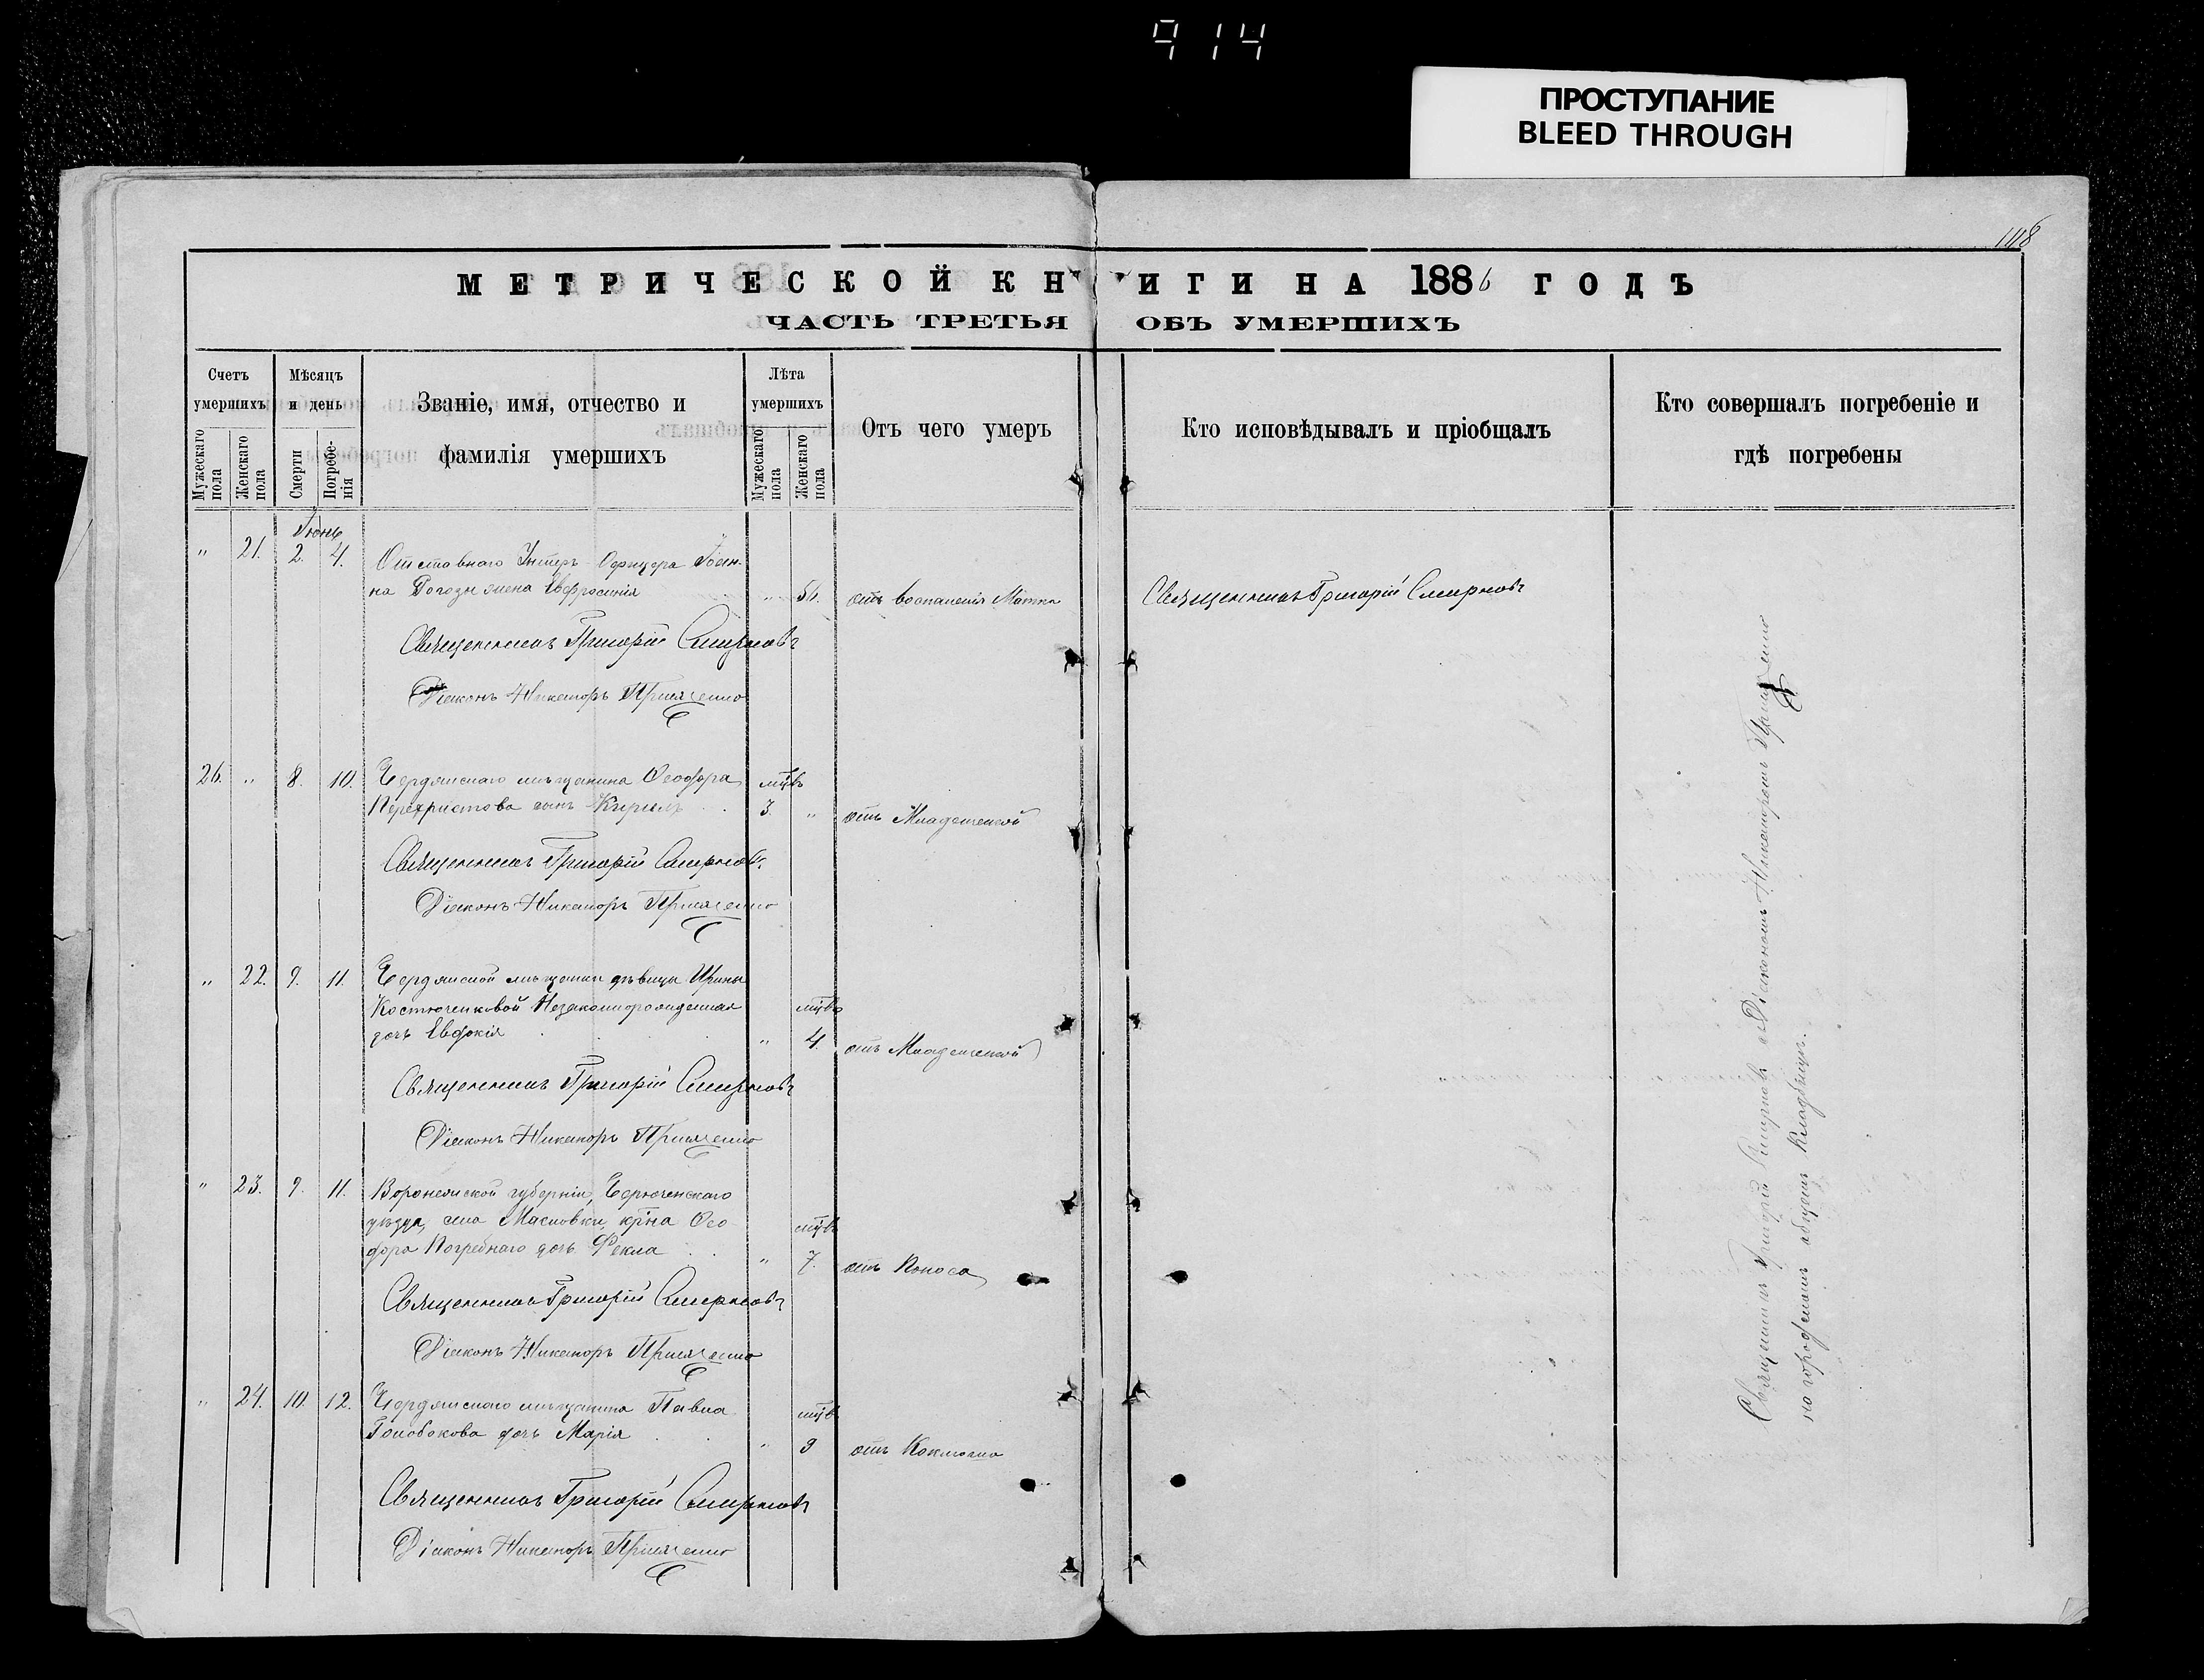 914
ПРОСТУПАНИЕ
BLEED THROUGH
148
МЕТРИЧЕСКОЙ КНИГИ НА 1886 ГОДЪ
ЧАСТЬ ТРЕТЬЯ ОБЪ УМЕРШИХЪ
Счетъ умершихъ
Мужескаго пола
Женскаго пола
Мѣсяцъ и день
Смерти
Погребенія
Званіе, имя, отчество и
фамилія умершихъ
Лѣта умершихъ
Мужескаго пола
Женскаго пола
Отъ чего умеръ
Кто исповѣдывалъ и пріобщалъ
Кто совершалъ погребеніе и
гдѣ погребены
Іюнь
" 21. 2. 4. Отставного Унтеръ-Офицера Іоан-
на жена Евфросинія " 56. отъ воспаленія Матки Священникъ Григорій Смирновъ
Священникъ Григорій Смирновъ
Діаконъ Никаноръ
26. " 8. 10. Бердянскаго мѣщанина Ѳеодора мцвъ
Перехристова сынъ Кирилъ 3. " отъ Младенческой
Священникъ Григорій Смирновъ
Діаконъ Никаноръ
" 22. 9. 11. Бердянской мѣщанки дѣвицы Ирины
Костюченковой Незаконнорожденная мцвъ
дочь Евдокія " 4. отъ Младенческой
Священникъ Григорій Смирновъ
Діаконъ Никаноръ
" 23. 9. 11. Воронежской губерніи, Бирюченскаго
уѣзда, села Масловки, кр̃на Ѳео- мцвъ
дора Погребнаго дочь Ѳекла " 7. отъ Поноса
Священникъ Григорій Смирновъ
Діаконъ Никаноръ
" 24. 10. 12. Бердянскаго мѣщанина Павла мцвъ
Голобокова дочь Марія " 9 отъ Коклюша
Священникъ Григорій Смирновъ
Діаконъ Никаноръ
Священникъ Григорій Смирновъ съ Діакономъ Никаноромъ
на городскомъ общемъ Кладбищѣ.